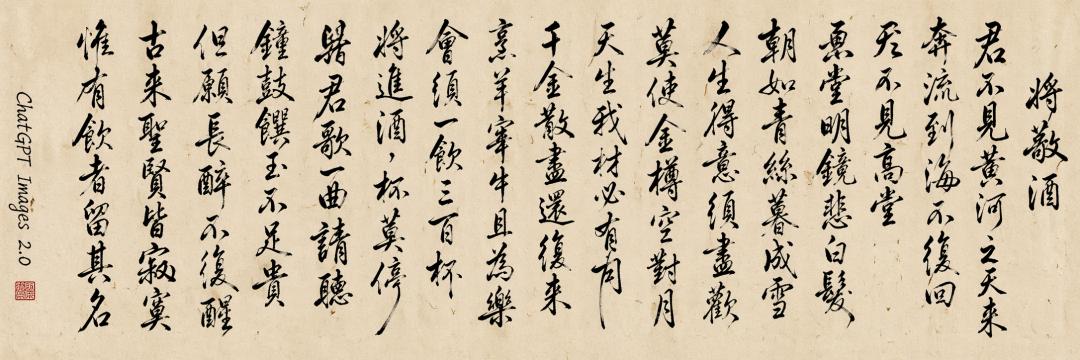 将敬酒
君不見黄河之天来
奔流到海不復回
不見高堂
堂明鏡悲白髮
朝如青絲暮成雪
人生得意須盡歡
莫使金樽空對月
天生我材必有
千金散盡還復来
烹羊宰牛且為樂
會須一飲三百杯
将進酒,杯莫停
君歌一曲請聽
鐘鼓饌玉不足貴
但願長醉不復醒
古来聖賢皆寂寞
惟有飲者留其名
ChatGPT Images 2.0